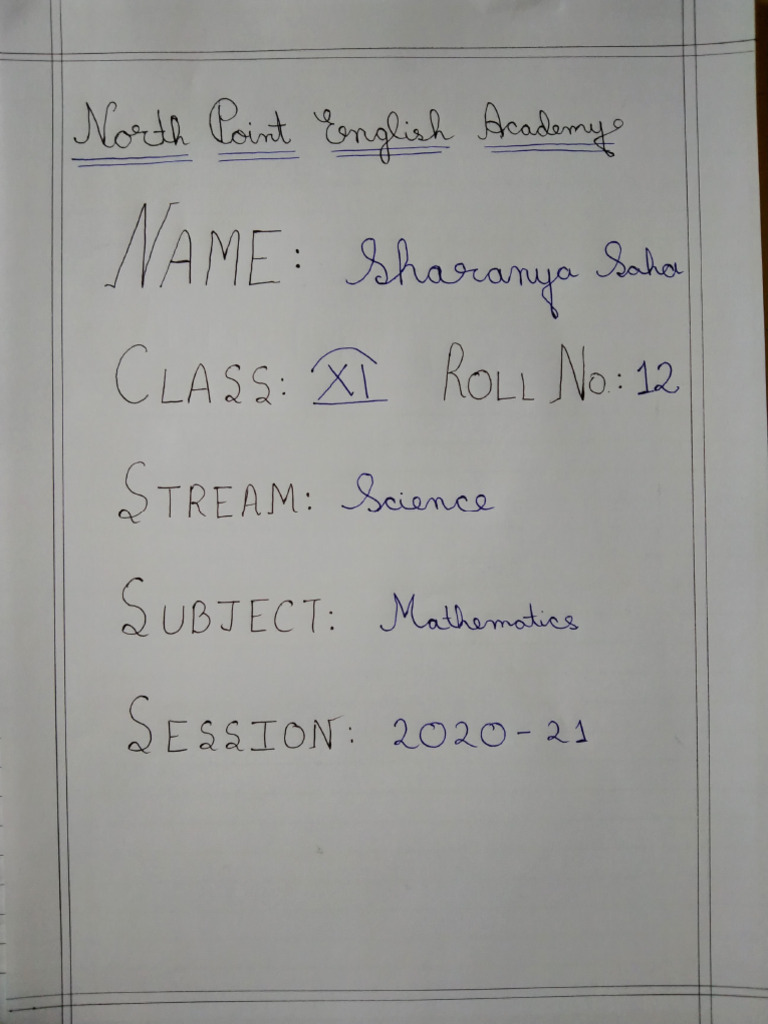 North Point English Academy
NAME: Sharanya Saha
CLASS: XI ROLL No.: 12
STREAM: Science
SUBJECT: Mathematics
SESSION: 2020-21